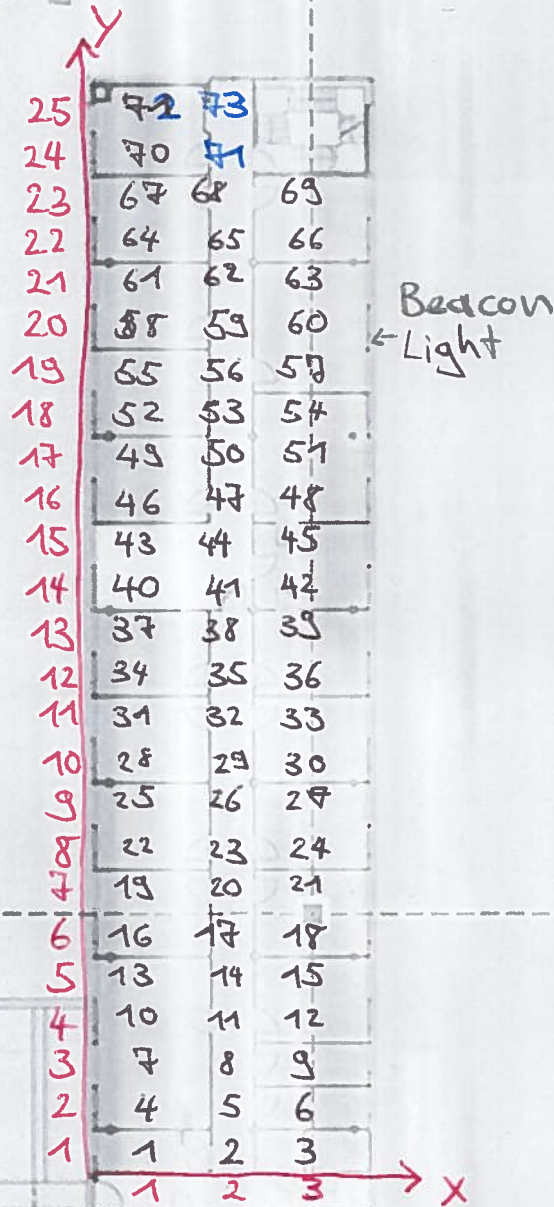 Y
25 72 73
24 70 71
23 67 68 69
22 64 65 66
21 61 62 63
20 58 59 60
Beacon
← Light
19 55 56 57
18 52 53 54
17 49 50 51
16 46 47 48
15 43 44 45
14 40 41 42
13 37 38 39
12 34 35 36
11 31 32 33
10 28 29 30
9 25 26 27
8 22 23 24
7 19 20 21
6 16 17 18
5 13 14 15
4 10 11 12
3 7 8 9
2 4 5 6
1 1 2 3
1 2 3 X